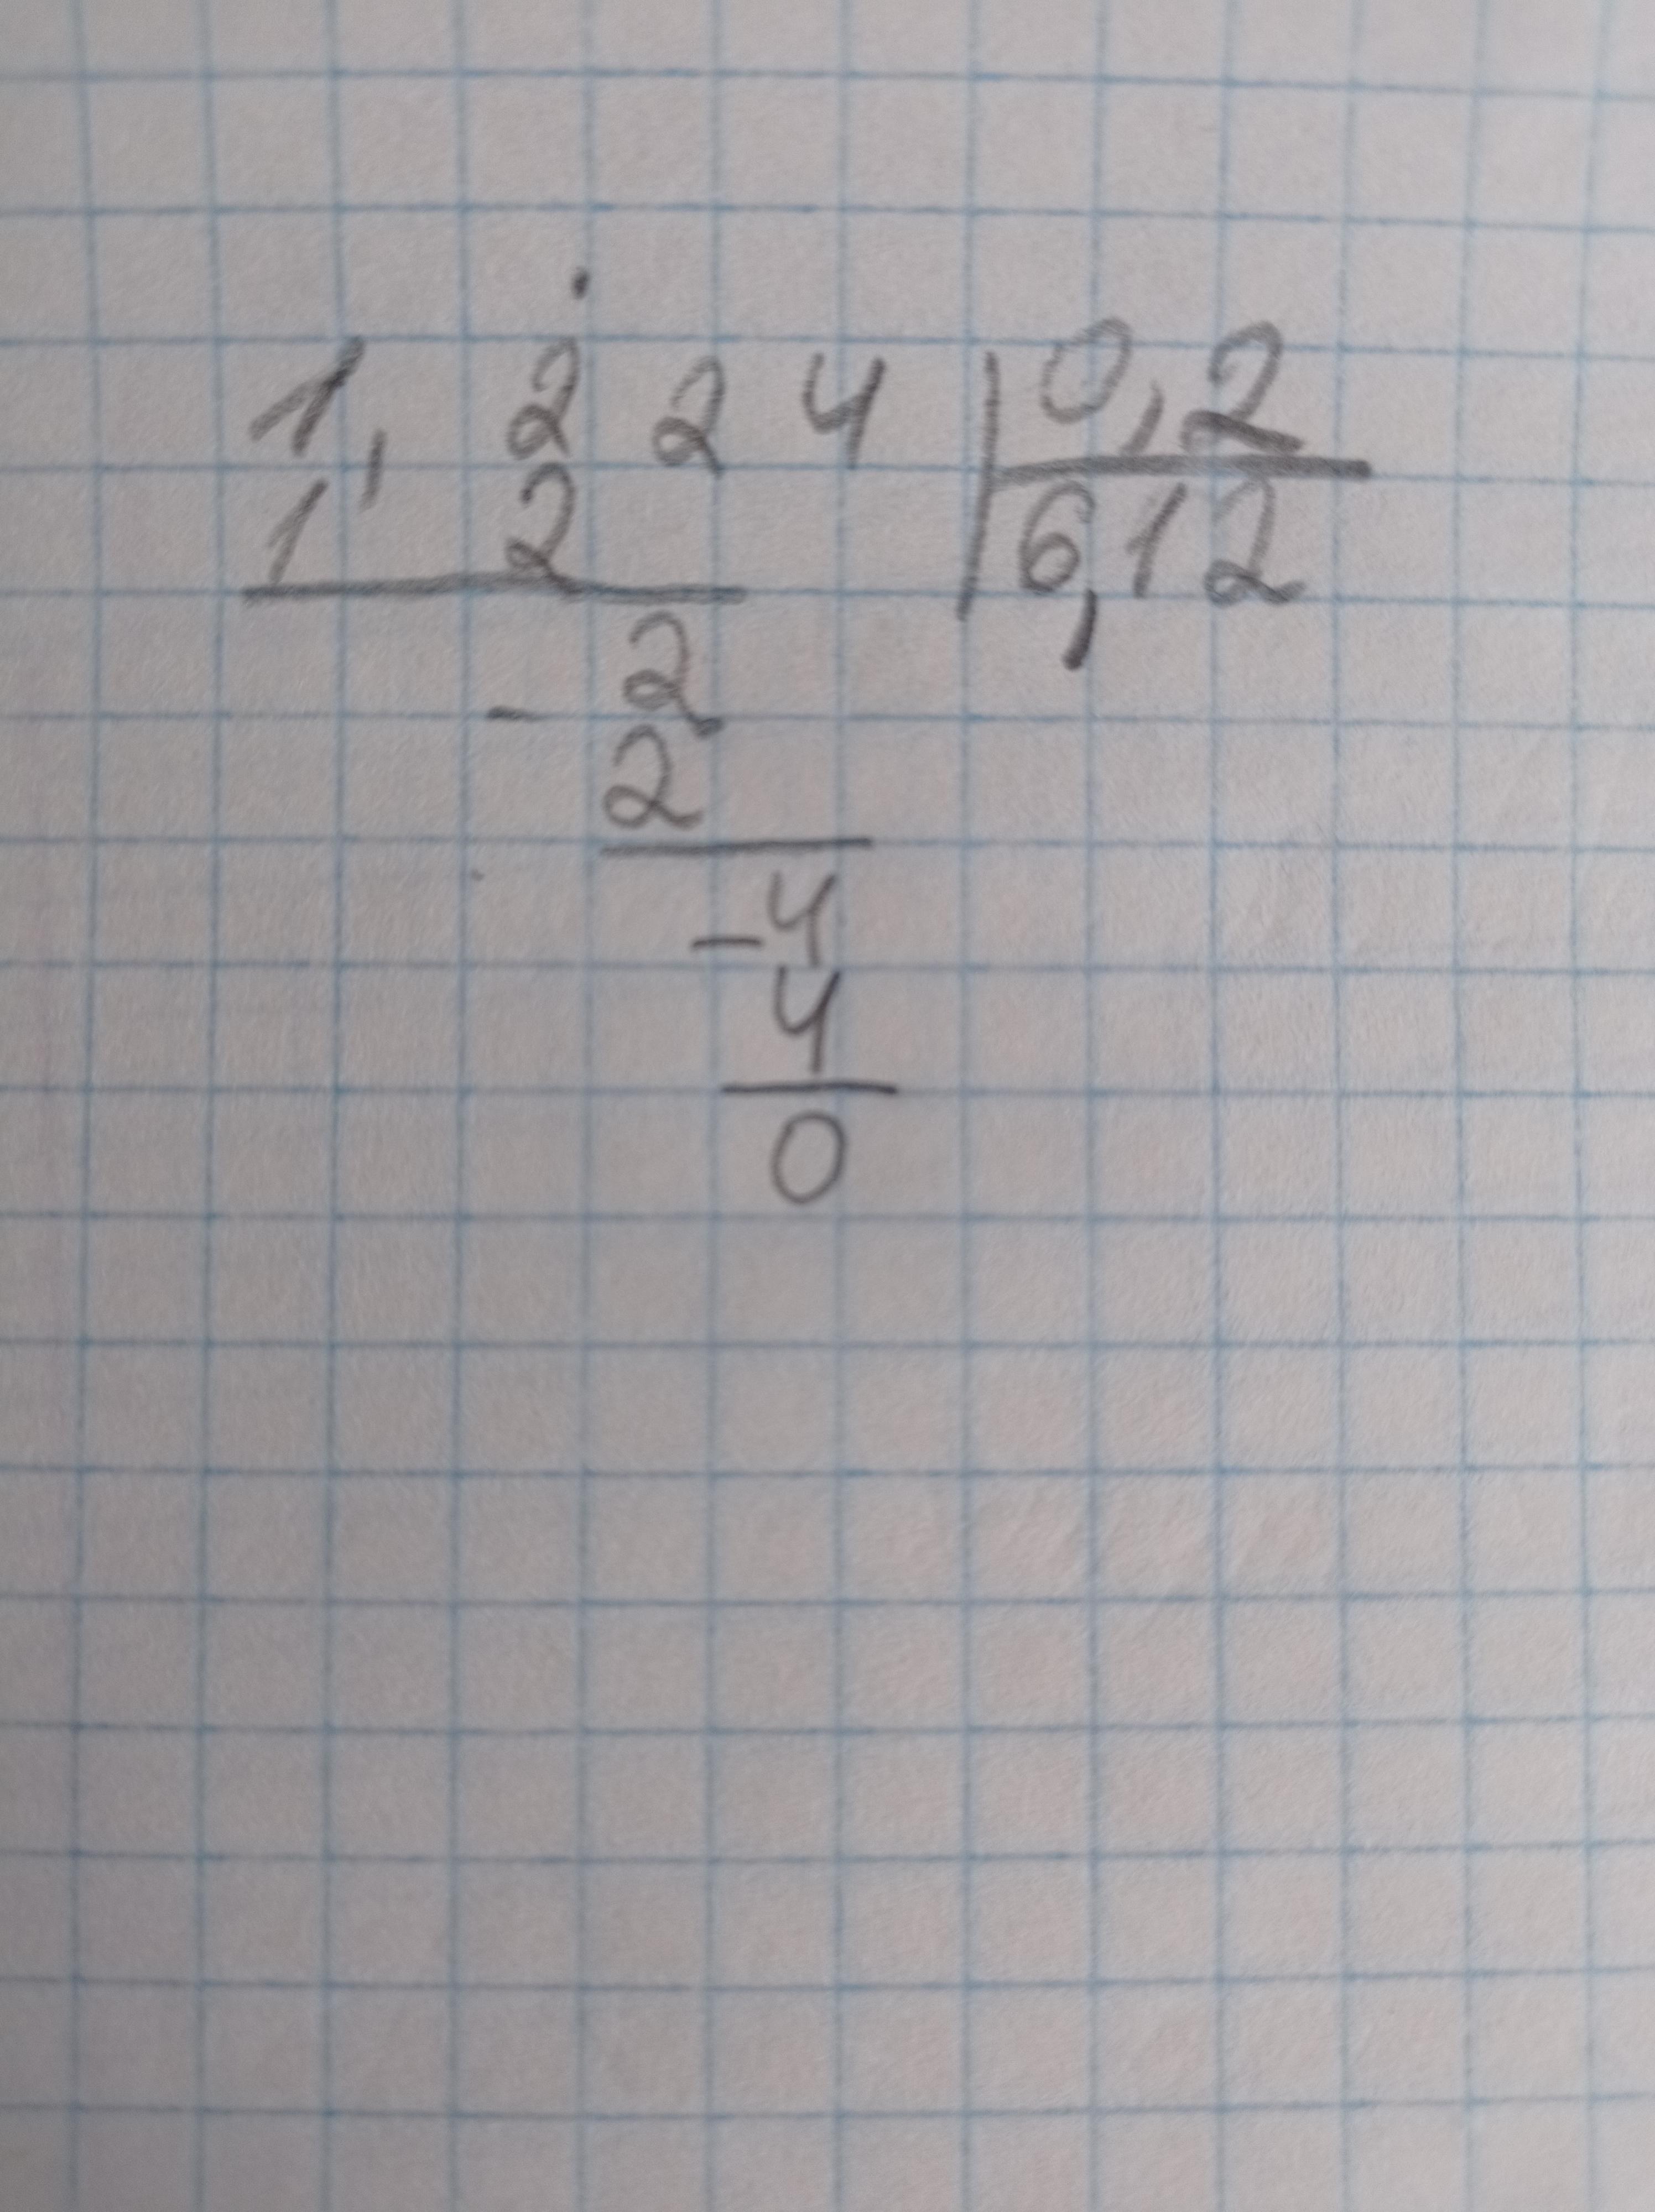 1,224 0,2
12 6,12
- 2
2
- 4
4
0